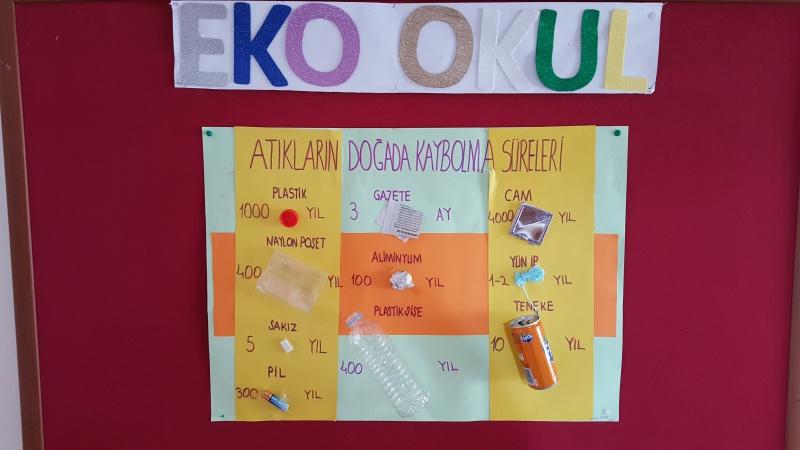 EKO OKUL
ATIKLARIN DOĞADA KAYBOLMA SÜRELERİ
PLASTİK
1000 YIL
NAYLON POŞET
400 YIL
SAKIZ
5 YIL
PİL
300 YIL
GAZETE
3 AY
ALİMİNYUM
100 YIL
PLASTİK ŞİŞE
400 YIL
CAM
4000 YIL
YÜN İP
1-2 YIL
TENEKE
10 YIL